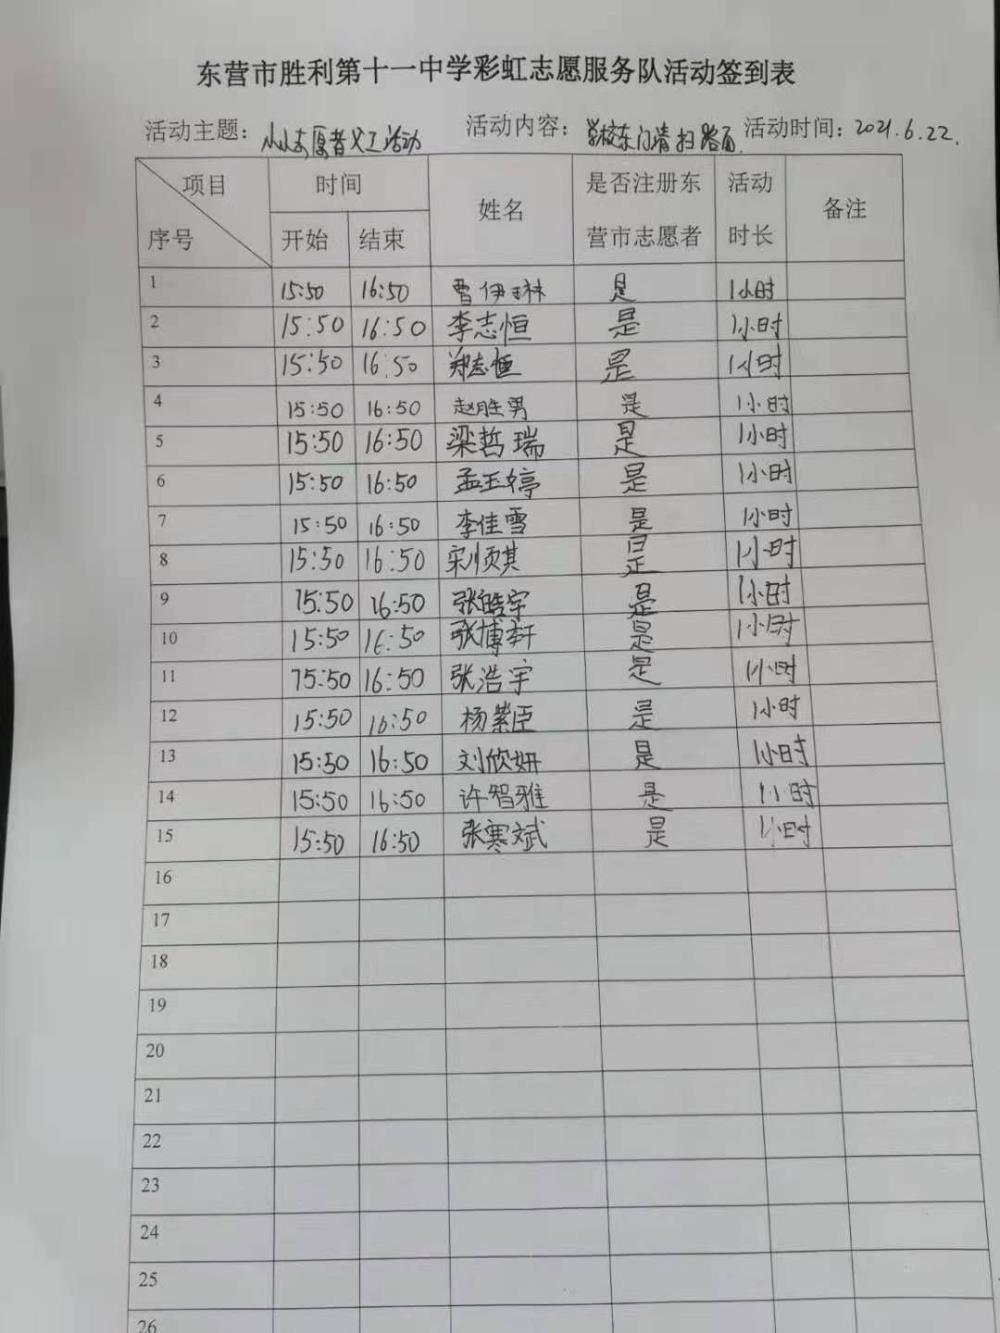 东营市胜利第十一中学彩虹志愿服务队活动签到表
活动主题：小小志愿者义工活动 活动内容：学校东门清扫路面. 活动时间：2021.6.22.
项目 序号 时间 开始 结束 姓名 是否注册东营市志愿者 活动时长 备注
1 15:50 16:50 曹伊琳 是 1小时
2 15:50 16:50 李志恒 是 1小时
3 15:50 16:50 郑志恒 是 1小时
4 15:50 16:50 赵胜男 是 1小时
5 15:50 16:50 梁哲瑞 是 1小时
6 15:50 16:50 孟玉婷 是 1小时
7 15:50 16:50 李佳雪 是 1小时
8 15:50 16:50 是 1小时
9 15:50 16:50 张皓宇 是 1小时
10 15:50 16:50 张博轩 是 1小时
11 15:50 16:50 张浩宇 是 1小时
12 15:50 16:50 杨紫臣 是 1小时
13 15:50 16:50 刘欣妍 是 1小时
14 15:50 16:50 许智雅 是 1小时
15 15:50 16:50 张寒斌 是 1小时
16
17
18
19
20
21
22
23
24
25
26